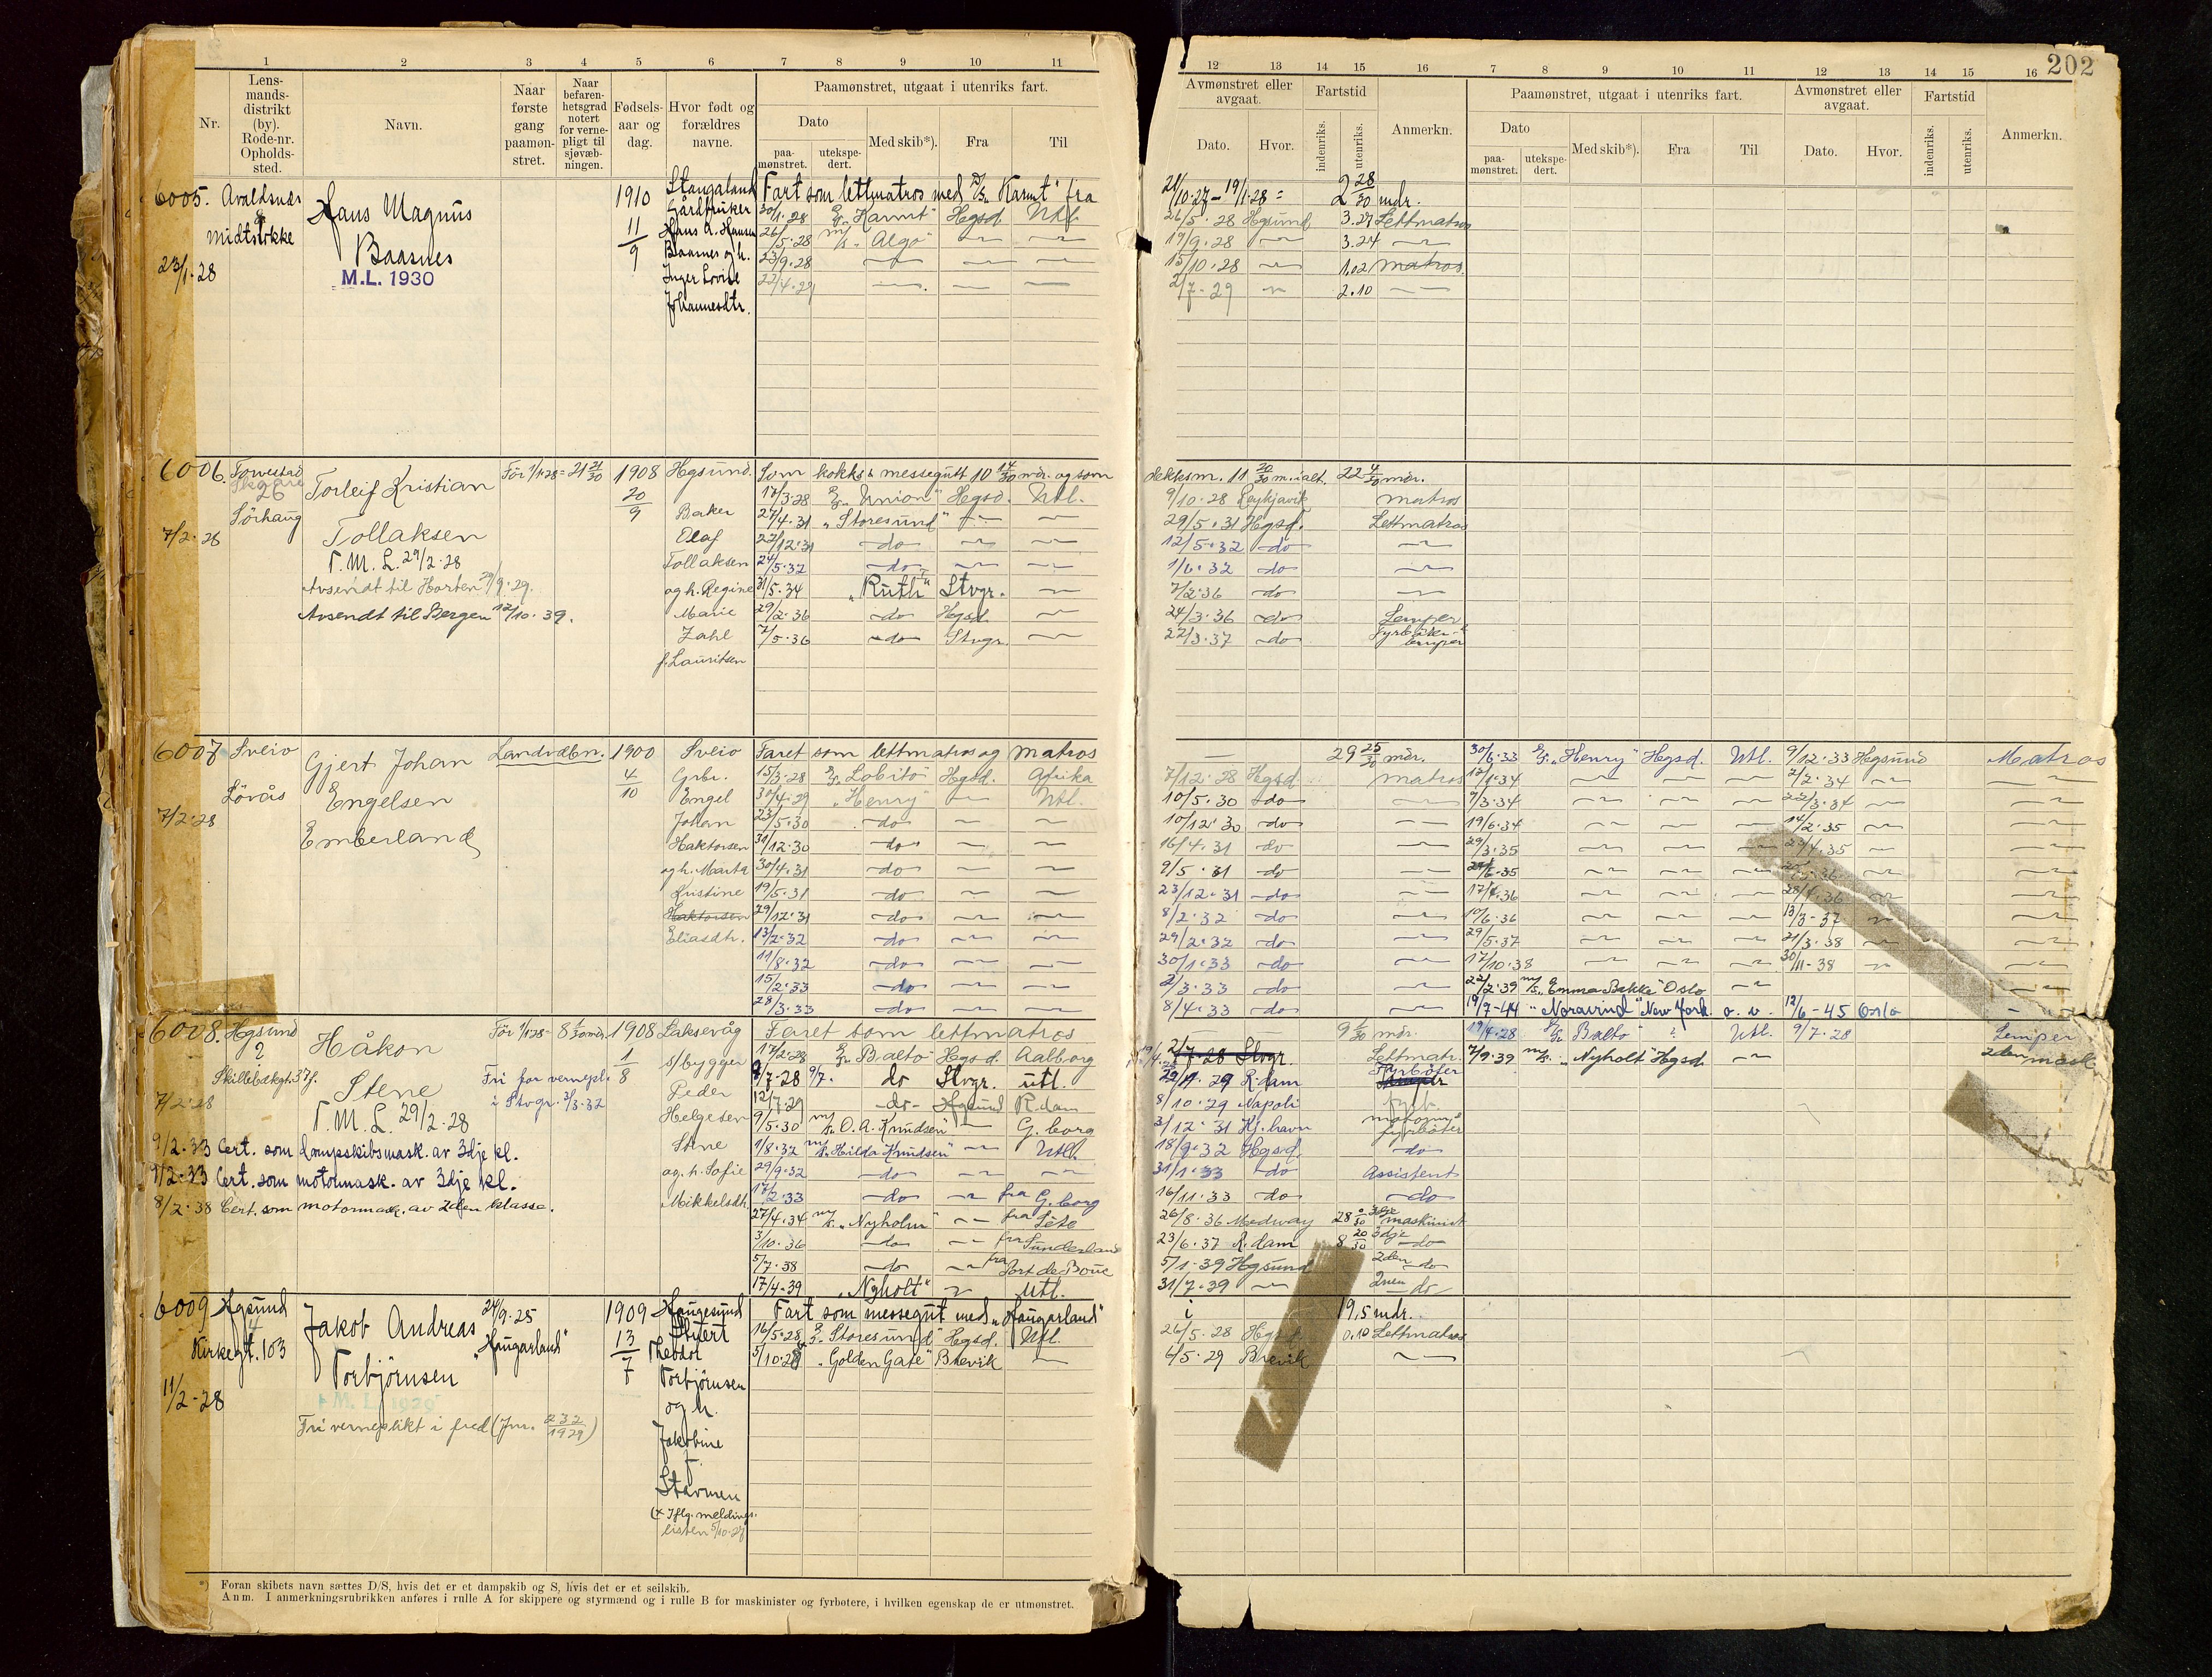 202
1 2 3 4 5 6 7 8 9 10 11
Nr.
Lens-
mands-
distrikt
(by).
Rode-nr.
Opholds-
sted.
Navn.
Naar
første
gang
paamøn-
stret.
Naar
befaren-
hetsgrad
notert
for verne-
pligt til
sjøvæb-
ningen.
Fødsels-
aar og
dag.
Hvor født og
forældres
navne.
Paamønstret, utgaat i utenriks fart.
Dato
paa-
mønstret.
utekspe-
dert.
Med skib*).
Fra
Til
12 13 14 15 16 7 8 9 10 11 12 13 14 15 16
Avmønstret eller
avgaat.
Dato.
Hvor.
Fartstid
indenriks.
utenriks.
Anmerkn.
Paamønstret, utgaat i utenriks fart.
Dato
paa-
mønstret.
utekspe-
dert.
Med skib*).
Fra
Til
Avmønstret eller
avgaat.
Dato.
Hvor.
Fartstid
indenriks.
utenriks.
Anmerkn.
6005. Avaldsnes
Midtstokke
23/1-28
Hans Magnus
Baasnes
M.L. 1930
1910
11/9
Stangaland
Gårdbruker
Hans A. Hansen
Baasnes og h.
Inger Lovise
Johannesdtr.
Fart som lettmatros med D/S "Karmt" fra 21/10.27 - 19/1.28 = 2 28/30 mdr.
30/1.28 "Karmt" Hegsd Utl. 26/5.28 Hgsund 3.27 Lettmatros
26/5.28 M/S "Algo" 19/9.28 3.24
23/9.28 15/10.28 1.02 matros
22/4.29 2/7-29 2.10
6006. Torvestad
26
Sørhaug
7/2.28
Torleif Kristian
Tollaksen
T.M.L. 29/2.28
Avsendt til Horten 29/9.29.
Avsendt til Bergen 12/10.39.
Før 1/1 28 = 21 21/30
1908
20/9
Hgsund.
Baker
Olaf
Tollaksen
og h. Regine
Marie
Zahl
f. Lauritsen
Som kokks & messegutt 10 14/30 mdr. og som dekksm. 11 20/30 m. ialt. 22 4/30 mdr.
17/3.28 "Union" Hegsd. Utl. 9/10.28 Reykjavik matros
27/4.31 "Storesund" 29/5.31 Hgsd. Lettmatros
22/12.31 do 12/5.32 do
24/5.32 do 1/6.32 do
31/5.34 "Ruth" Stvgr. 7/2.36 do
29/2.36 do Hgsd. 24/3.36 do Lemper
7/5.36 do Stvgr. 22/3.37 do Fyrbøter & lemper
6007 Sveio
Lövås
7/2.28
Gjert Johan
Engelsen
Emberland
Landvæbn.
1900
4/10
Sveio
Grbr.
Engel
Johan
Haktorsen
og h. Marta
Kristine
Haktorsen
Eliasdtr.
Faret som lettmatros og matros 29 25/30 mdr.
15/3.28 "Lobito" Hgsd. Afrika 7/12.28 Hgsd matros
30/4.29 "Henry" Utl. 10/5.30 do
23/5.30 do 10/12.30 do
31/12.30 do 16/4.31 do
30/4.31 do 9/5.31 do
19/5.31 do 23/12.31 do
29/12.31 do 8/2.32 do
13/2.32 do 29/2.32 do
11/8.32 do 30/1.33 do
15/2.33 do 2/3.33 do
28/3.33 do 8/4.33 do
30/6.33 "Henry" Hgsd. Utl. 9/12.33 Hegsund Matros
12/1.34 2/2.34
7/3.34 22/3.34
19/6.34 14/2.35
29/3.35 23/4.35
17/4.36 28/4.36
10/6.36 13/3-37
29/5.37 21/3.38
17/10.38 30/11-38
22/2.39 M/S "Emma Bakke" Oslo
19/9-44 "Noravind" New York o. v. 12/6-45 Oslo
6008. Hgsund
2
Skillebækgt. 37f.
7/2.28
Håkon
Stene
T.M.L. 29/2.28
Før 1/1 28 - 8 6/30 mdr
Fri for vernepl.
i Stvgr. 3/3.32
1908
1/8
Laksevåg
s/bygger
Peder
Helgesen
Stene
og h. Sofie
Mikkelsdtr.
9/2.33 Cert. som dampskibsmask. av 3dje kl.
9/2.33 Cert. som motormask. av 3dje kl.
8/2.38 Cert. som motormask. av 2den klasse.
Faret som lettmatros 9 6/30 mdr.
17/2.28 "Balto" Hgsd. Aalborg 2/7.28 Stvgr. Lettmatr.
9/7.28 9/7. do Stvgr. utl. 29 R.dam Fyrbøter
12/7.29 do Hgsund R.dam 8/10.29 Napoli fyrb.
9/5.30 M/S "O.A. Knudsen" G.borg 3/12.31 Kj.havn fyrbøter
1/8.32 M/S "Hilda Knudsen" Utl. 18/9.32 Hgsd. do
29/9.32 do 31/1.33 do Assistent
17/2.33 do fra G.borg 16/11.33 do do
27/4.34 M/S "Nyholm" fra Sète 26/8.36 Medway 28 0/30 3dje maskinist
3/10.36 do fra Sunderland 23/6.37 R.dam 8 20/30 3dje do
5/7.38 do fra Port de Bouc 5/1.39 Hgsund 2den do
17/4.39 "Nyholt" Utl. 31/7.39 2nen do
19/4.28 "Balto" ? Utl. 9/7.28 Lemper
7/9.39 M/S "Nyholt" Hgsd. 2den mask
6009 Hgsund
4
Kirkegt. 103
11/2-28
Jakob Andreas
Torbjörnsen
M.L. 1929
Fri verneplikt i fred (Jnr. 232/1929)
24/9-25
"Haugarland"
1909
13/7
Haugesund
Theodor
Torbjörnsen
og h.
Jakobine
f.
(x Iflg. meldings-
listen 5/10.28
Fart som messegut med "Haugarland" i 19,5 mdr.
16/5.28 "Storesund" Hegsd. Utl. 26/5.28 Hgsd. 0.10 Lettmatros
5/10.28 "Golden Gate" Brevik 6/5.29 Brevik
*) Foran skibets navn sættes D/S, hvis det er et dampskib og S, hvis det er et seilskib.
Anm. I anmerkningsrubrikken anføres i rulle A for skippere og styrmænd og i rulle B for maskinister og fyrbøtere, i hvilken egenskap de er utmønstret.